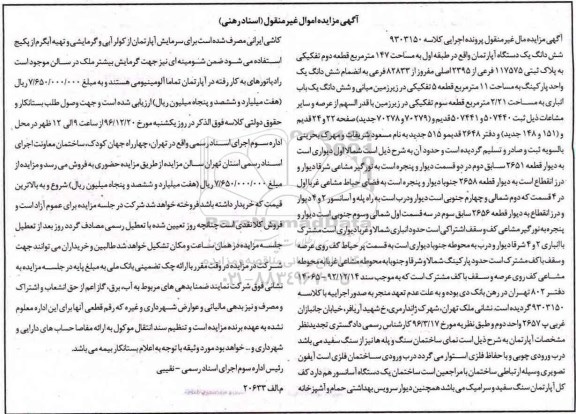 آگهی مزایده اموال غیر منقول (اسناد رهنی)
آگهی مزایده مال غیر منقول پرونده اجرایی کلاسه ۹۳۰۳۱۵۰
شش دانگ یک دستگاه آپارتمان واقع در طبقه اول به مساحت ۱۴۷ مترمربع قطعه دوم تفکیکی
به پلاک ثبتی ۱۱۷۵۷۵ فرعی از ۲۳۹۵ اصلی مفروز از ۸۲۸۳۳ فرعی به انضمام شش دانگ یک
واحد پارکینگ به مساحت ۱۱ مترمربع قطعه ۵ تفکیکی در زیرزمین میانی و شش دانگ یک باب
انباری به مساحت ۲/۲۱ مترمربع قطعه سوم تفکیکی در زیرزمین با قدر السهم از عرصه و سایر
مشاعات ذیل ثبت ۵۰۷۴۴۰ و ۵۰۷۴۴۱ قدیم و (۷۰۲۷۹ و ۷۰۲۷۸ جدید) صفحه ۲۲ و ۲۴ قدیم
و (۱۵۱ و ۱۴۸ جدید) و دفتر ۲۶۴۸ قدیم و ۵۱۵ جدید به نام مسعود شریفات و مهرک بحرینی
بالسویه ثبت و صادر و تسلیم گردیده است و حدود آن به شرح ذیل است شمالا اول دیواری است
به دیوار قطعه ۲۶۵۱ سابق دوم در دو قسمت دیوار و پنجره است به نورگیر مشاعی شرقا دیوار و
درز انقطاع است به دیوار قطعه ۲۶۵۸ جنوبا دیوار و پنجره است به فضای حیاط مشاعی غربا اول
در ۴ قسمت که دوم شمالی و چهارم جنوبی است دیوار و درب است به راه پله و آسانسور ۲ و ۴ دیوار
و درز انقطاع به دیوار قطعه ۲۶۵۶ سابق سوم در سه قسمت اول شمالی و سوم جنوبی است دیوار و
پنجره به نورگیر مشاعی کف و سقف اشتراکی است حدود انباری شمالا و غربا دیواری است اشتراکی
با انباری ۲ و ۴ شرقا دیوار و درب به محوطه جنوبا دیواری است به قسمت پر حیاط کف روی عرصه
و سقف با کف مشترک است حدود پارکینگ شمالا و شرقا و جنوبا به محوطه مشاعی غربا به محوطه
مشاعی کف روی عرصه و سقف با کف مشترک است که به موجب سند ۱۴۰۶۵-۹۲/۱۲/۱۴
دفتر ۸۰۲ تهران در رهن بانک دی بوده و به علت عدم تعهد منجر به صدور اجراییه با کلاسه
۹۳۰۳۱۵۰ گردیده است. نشانی ملک تهران، شهرک ژاندارمری، خ شهید آریافر، خیابان جانبازان
غربی پ ۲۶۵۷ واحد دوم و طبق نظریه مورخ ۹۶/۳/۱۷ کارشناس رسمی دادگستری تجدید نظر
مشخصات آپارتمان به شرح ذیل است نمای ساختمان سنگ و پله ها نیز از سنگ سفید می باشد
درب ورودی چوبی و با حفاظ فلزی استوار می گردد درب ورودی ساختمان فلزی است آیفون
تصویری وسیله ارتباطی ساختمان با مراجعین است ساختمان یک دستگاه آسانسور هم دارد کف
کل آپارتمان سنگ سفید و سرامیک می باشد همچنین دیوار سرویس بهداشتی حمام و آشپزخانه
کاشی ایرانی مصرف شده است برای سرمایش آپارتمان از کولر آبی و گرمایشی و تهیه آبگرم از پکیج
استفاده می شود ضمن شومینه ای نیز جهت گرمایش بیشتر ملک در سالن موجود است
رادیاتورهای به کار رفته در آپارتمان تماما آلومینیومی هستند و به مبلغ ۷/۶۵۰/۰۰۰/۰۰۰ ریال
(هفت میلیارد و ششصد و پنجاه میلیون ریال) ارزیابی شده است و جهت وصول طلب بستانکار و
حقوق دولتی کلاسه فوق الذکر در روز یکشنبه مورخ ۹۶/۱۲/۲۰ از ساعت ۹ الی ۱۲ ظهر در محل
اداره سوم اجرای اسناد رسمی واقع در تهران، چهار راه جهان کودک، ساختمان معاونت اجرای
اسناد رسمی استان تهران سالن مزایده از طریق مزایده حضوری به فروش می رسد و مزایده از
مبلغ ۷/۶۵۰/۰۰۰/۰۰۰ ریال (هفت میلیارد و ششصد و پنجاه میلیون ریال) شروع و به بالاترین
قیمت که خریدار داشته باشد فروخته خواهد شد شرکت در جلسه مزایده برای عموم آزاد است و
فروش کلا نقدی است چنانچه روز تعیین شده با تعطیل رسمی مصادف گردد روز بعد از تعطیل
جلسه مزایده در همان ساعت و مکان تشکیل خواهد شد طالبین و خریداران می توانند جهت
شرکت در مزایده در وقت مقرر با ارائه چک تضمینی بانک ملی به مبلغ پایه در جلسه مزایده به
نشانی فوق شرکت نمایند ضمنا بدهی های مربوط به آب، برق، گاز اعم از حق انشعاب و اشتراک
و مصرف و نیز بدهی مالیاتی و عوارض شهرداری و غیره که رقم قطعی آنها برای این اداره معلوم
نشده به عهده برنده مزایده است و تنظیم سند انتقال موکول به ارائه مفاصا حساب های دارایی و
شهرداری و ... خواهد بود مورد وثیقه با توجه به اعلام بستانکار بیمه می باشد.
رئیس اداره سوم اجرای اسناد رسمی - نقیبی
م الف ۲۰۶۳۳
۰۲۱-۸۸۳۴۹۶۷۰-۵